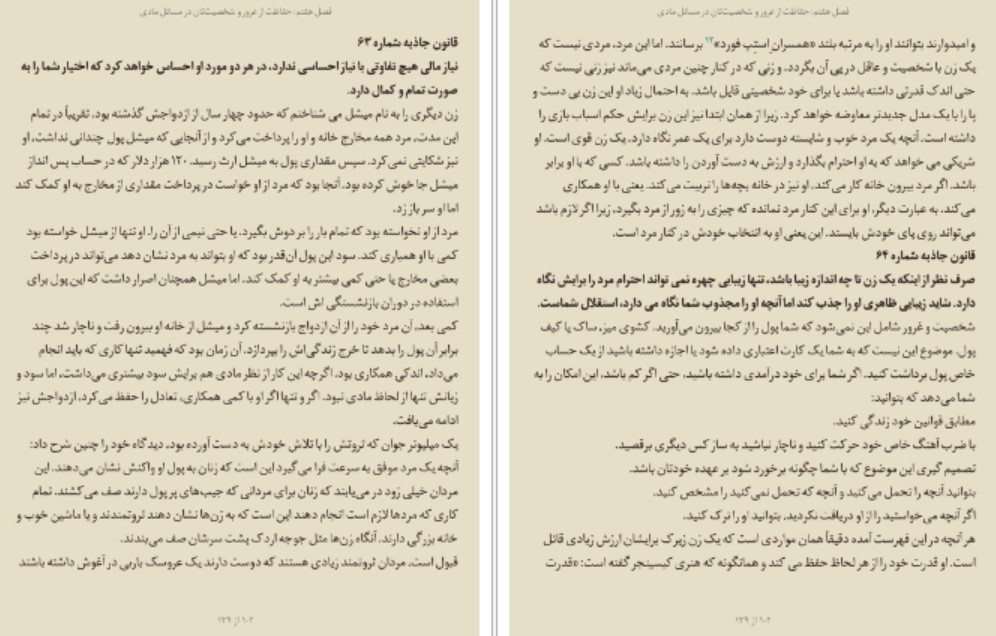 فصل هشتم: حفاظت از غرور و شخصیت‌تان در مسائل مادی
قانون جاذبه شماره ۶۳
نیاز مالی هیچ تفاوتی با نیاز احساسی ندارد، در هر دو مورد او احساس خواهد کرد که اختیار شما را به
صورت تمام و کمال دارد.
زن دیگری را به نام میشل می شناختم که حدود چهار سال از ازدواجش گذشته بود. تقریباً در تمام
این مدت، مرد همه مخارج خانه و او را پرداخت می‌کرد و از آنجایی که میشل پول چندانی نداشت، او
نیز شکایتی نمی‌کرد. سپس مقداری پول به میشل ارث رسید. ۱۲۰ هزار دلار که در حساب پس انداز
میشل جا خوش کرده بود. آنجا بود که مرد از او خواست در پرداخت مقداری از مخارج به او کمک کند
اما او سر باز زد.
مرد از او نخواسته بود که تمام بار را بر دوش بگیرد. یا حتی نیمی از آن را. او تنها از میشل خواسته بود
کمی با او همیاری کند. سود این پول آن‌قدر بود که او بتواند به مرد نشان دهد می‌تواند در پرداخت
بعضی مخارج یا حتی کمی بیشتر به او کمک کند. اما میشل همچنان اصرار داشت که این پول برای
استفاده در دوران بازنشستگی اش است.
کمی بعد، آن مرد خود را از آن ازدواج بازنشسته کرد و میشل از خانه او بیرون رفت و ناچار شد چند
برابر آن پول را بدهد تا خرج زندگی‌اش را بپردازد. آن زمان بود که فهمید تنها کاری که باید انجام
می‌داد، اندکی همکاری بود. اگرچه این کار از نظر مادی هم برایش سود بیشتری می‌داشت، اما سود و
زیانش تنها از لحاظ مادی نبود. اگر و تنها اگر او با کمی همکاری، تعادل را حفظ می‌کرد، ازدواجش نیز
ادامه می‌یافت.
یک میلیونر جوان که ثروتش را با تلاش خودش به دست آورده بود، دیدگاه خود را چنین شرح داد:
آنچه یک مرد موفق به سرعت فرا می‌گیرد این است که زنان به پول او واکنش نشان می‌دهند. این
مردان خیلی زود در می‌یابند که زنان برای مردانی که جیب‌های پر پول دارند صف می‌کشند. تمام
کاری که مردها لازم است انجام دهند این است که به زن‌ها نشان دهند ثروتمندند و یا ماشین خوب و
خانه بزرگی دارند. آنگاه زن‌ها مثل جوجه اردک پشت سرشان صف می‌بندند.
قبول است، مردان ثروتمند زیادی هستند که دوست دارند یک عروسک باربی در آغوش داشته باشند
۱۰۲ از ۱۳۹
فصل هشتم: حفاظت از غرور و شخصیت‌تان در مسائل مادی
و امیدوارند بتوانند او را به مرتبه بلند «همسران استپ فورد»۱۳ برسانند. اما این مرد، مردی نیست که
یک زن با شخصیت و عاقل در پی آن بگردد. و زنی که در کنار چنین مردی می‌ماند نیز زنی نیست که
حتی اندک قدرتی داشته باشد یا برای خود شخصیتی قایل باشد. به احتمال زیاد او این زن بی دست و
پا را با یک مدل جدیدتر معاوضه خواهد کرد. زیرا از همان ابتدا نیز این زن برایش حکم اسباب بازی را
داشته است. آنچه یک مرد خوب و شایسته دوست دارد برای یک عمر نگاه دارد، یک زن قوی است. او
شریکی می خواهد که به او احترام بگذارد و ارزش به دست آوردن را داشته باشد. کسی که با او برابر
باشد. اگر مرد بیرون خانه کار می‌کند، او نیز در خانه بچه‌ها را تربیت می‌کند. یعنی با او همکاری
می‌کند. به عبارت دیگر، او برای این کنار مرد نمانده که چیزی را به زور از مرد بگیرد، زیرا اگر لازم باشد
می‌تواند روی پای خودش بایستد. این یعنی او به انتخاب خودش در کنار مرد است.
قانون جاذبه شماره ۶۴
صرف نظر از اینکه یک زن تا چه اندازه زیبا باشد، تنها زیبایی چهره نمی تواند احترام مرد را برایش نگاه
دارد. شاید زیبایی ظاهری او را جذب کند اما آنچه او را مجذوب شما نگاه می دارد، استقلال شماست.
شخصیت و غرور شامل این نمی‌شود که شما پول را از کجا بیرون می‌آورید. کشوی میز، ساک یا کیف
پول. موضوع این نیست که به شما یک کارت اعتباری داده شود یا اجازه داشته باشید از یک حساب
خاص پول برداشت کنید. اگر شما برای خود درآمدی داشته باشید، حتی اگر کم باشد، این امکان را به
شما می‌دهد که بتوانید:
مطابق قوانین خود زندگی کنید.
با ضرب آهنگ خاص خود حرکت کنید و ناچار نباشید به ساز کس دیگری برقصید.
تصمیم گیری این موضوع که با شما چگونه برخورد شود بر عهده خودتان باشد.
بتوانید آنچه را تحمل می‌کنید و آنچه که تحمل نمی‌کنید را مشخص کنید.
اگر آنچه می‌خواستید را از او دریافت نکردید، بتوانید او را ترک کنید.
هر آنچه در این فهرست آمده دقیقاً همان مواردی است که یک زن زیرک برایشان ارزش زیادی قائل
است. او قدرت خود را از هر لحاظ حفظ می کند و همانگونه که هنری کیسینجر گفته است: «قدرت
۱۰۲ از ۱۳۹